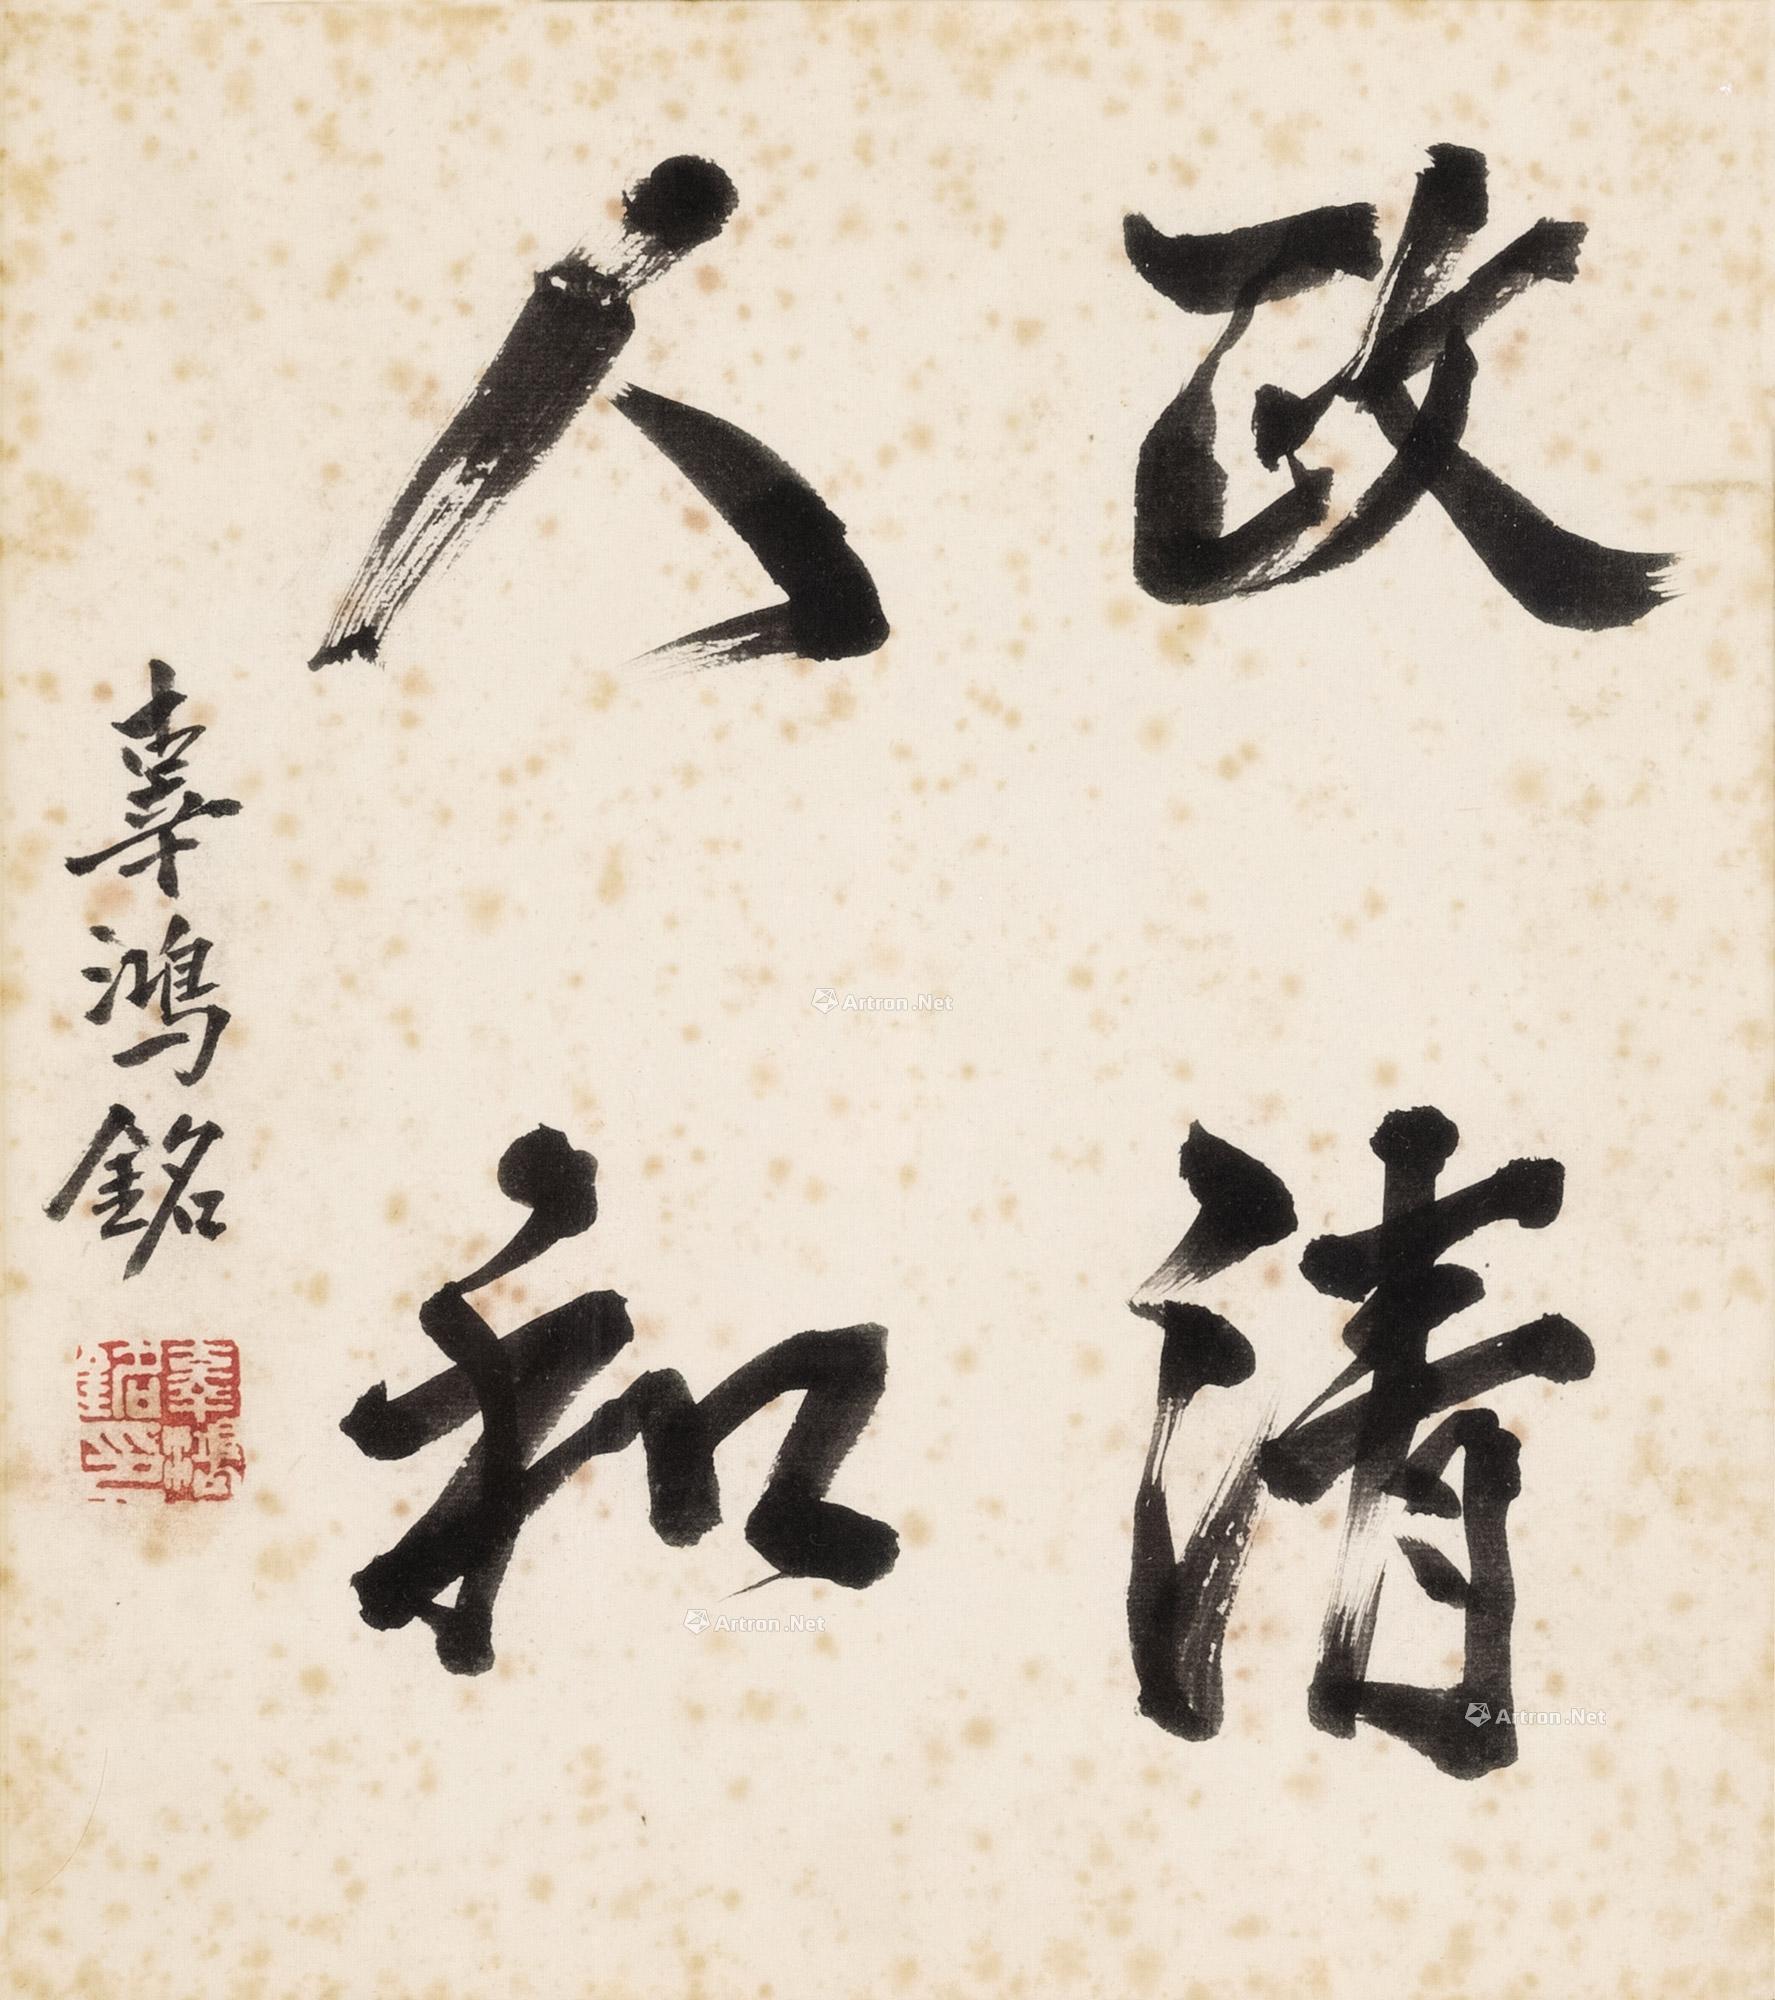 政清
人和
辜鴻銘
Artron.Net
Artron.Net
Artron.Net